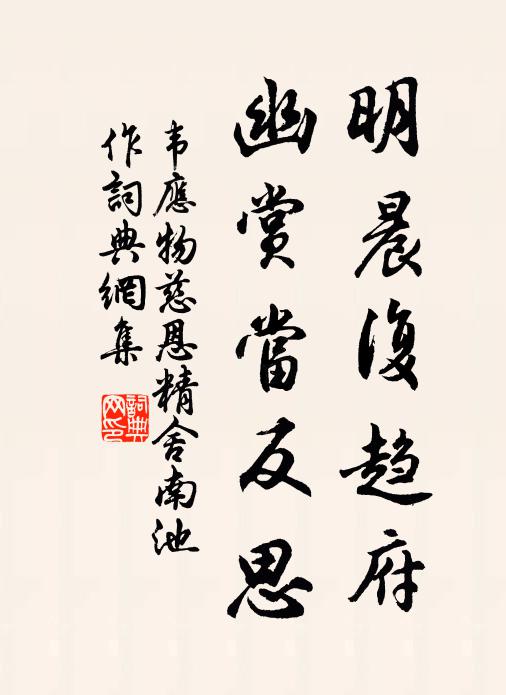 明晨復趋府
幽赏當反思
韦應物慈恩精舍南池
作詞典網集
詞典
网印